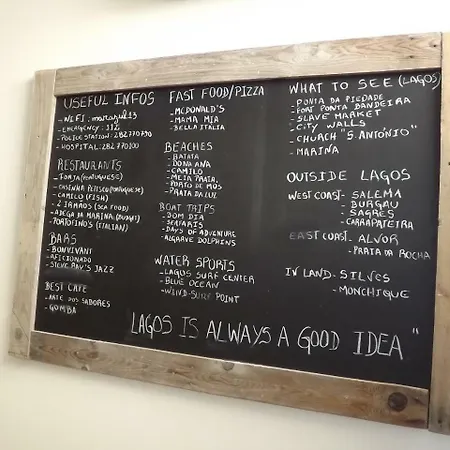 USEFUL INFOS
- WIFI:
- EMERGENCY: 112
- POLICE STATION: 282770930
- HOSPITAL: 282770100
RESTAURANTS
- FORJA (PORTUGUESE)
- CASINHA PETISCO (PORTUGUESE)
- CAMILO (FISH)
- 2 IRMÃOS (SEA FOOD)
- ADEGA DA MARINA
- PORTOFINO'S (ITALIAN)
BARS
- BONVIVANI
- AFICIONADO
- STEVIE RAY'S JAZZ
BEST CAFE
- ARTE DOS SABORES
- GOMBA
FAST FOOD/PIZZA
- MCDONALD'S
- MAMA MIA
- BELLA ITALIA
BEACHES
- BATATA
- DONA ANA
- CAMILO
- MEIA PRAIA
- PORTO DE MÓS
- PRAIA DA LUZ
BOAT TRIPS
- BOM DIA
- SEAFARIS
- DAYS OF ADVENTURE
- ALGARVE DOLPHINS
WATER SPORTS
- LAGOS SURF CENTER
- BLUE OCEAN
- WIND-SURF POINT
WHAT TO SEE (LAGOS)
- PONTA DA PIEDADE
- FORT PONTA BANDEIRA
- SLAVE MARKET
- CITY WALLS
- CHURCH "S. ANTÓNIO"
- MARINA
OUTSIDE LAGOS
WEST COAST - SALEMA
- BURGAU
- SAGRES
- CARRAPATEIRA
EAST COAST - ALVOR
- PRAIA DA ROCHA
INLAND - SILVES
- MONCHIQUE
LAGOS IS ALWAYS A GOOD IDEA"